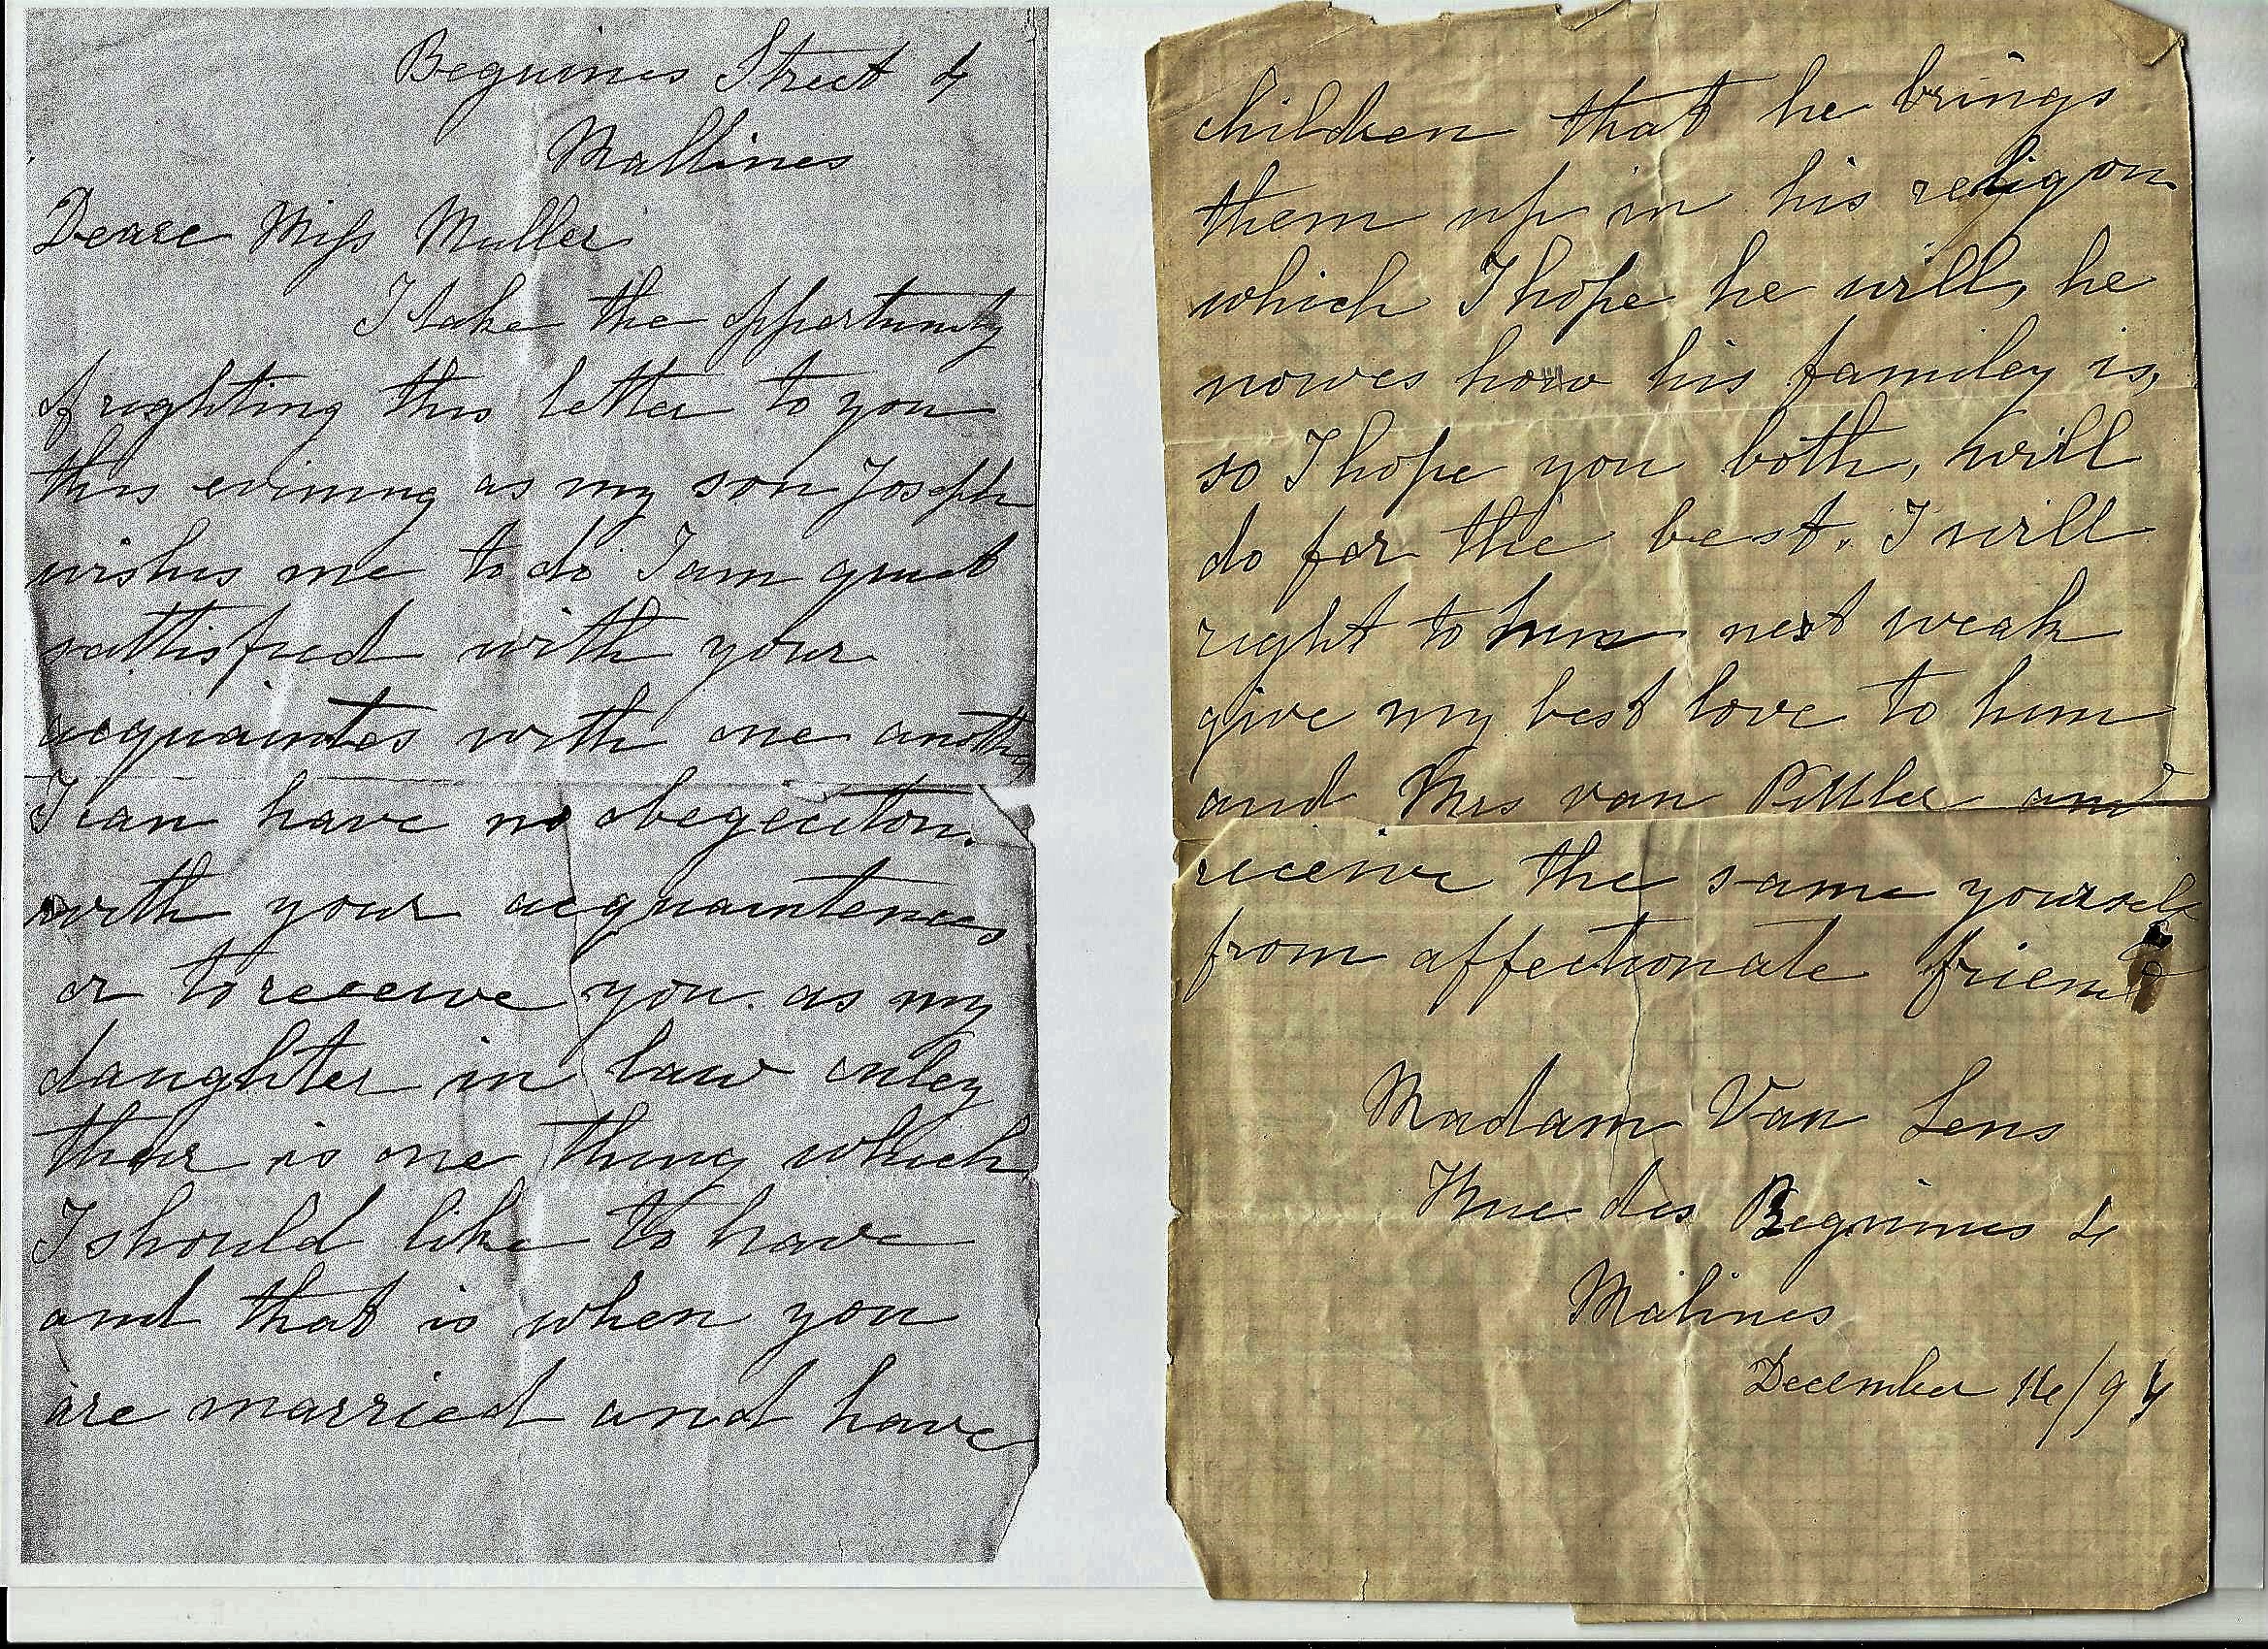 Beguines Street 4
Mallines
Deare Miss Muller
I take the opportunity
of righting this letter to you
this evining as my son Joseph
wishes me to do I am quiet
sattisfied with your
acquaintes with one another
I can have no obegeciton.
with your acquaintences
or to receive you as my
daughter in law onley
thear is one thing which
I should like to have
and that is when you
are married and have
children that he brings
them up in his religon
which I hope he will, he
nowes how his familey is,
so I hope you both, will
do for the best. I will
right to him next weak
give my best love to him
and Mrs van and
receive the same yourself
from affectionate friend
Madam Van Lens
des Beguines 4
Malines
December